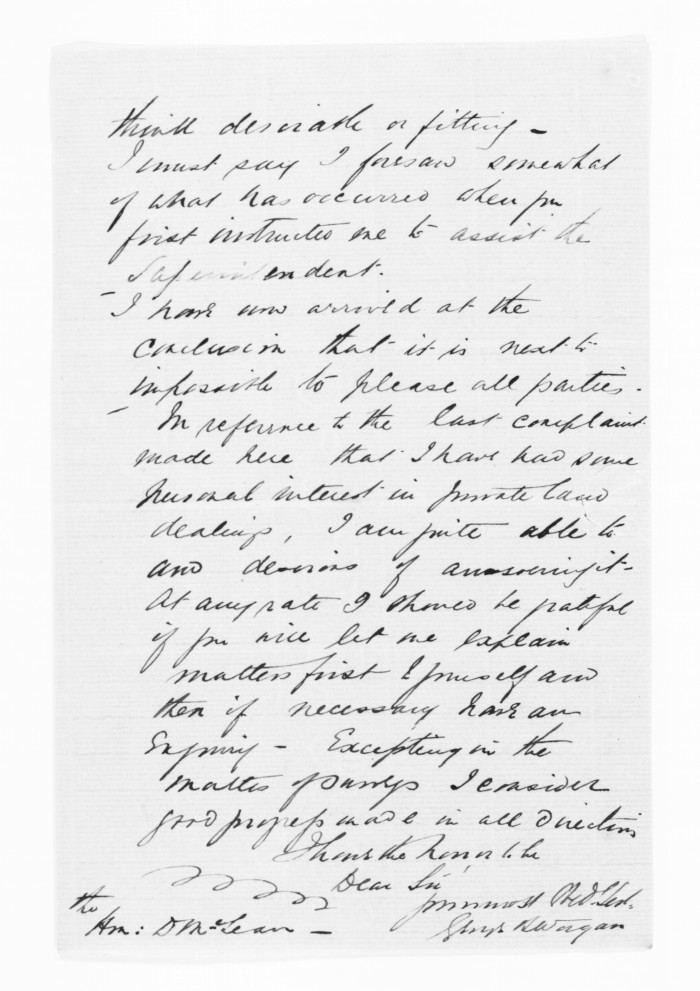 think desirable or fitting -
I must say I foresaw somewhat
of what has occurred when you
first instructed me to assist the
Superintendent.
- I have now arrived at the
conclusion that it is next to
impossible to please all parties.
- In reference to the last complaint
made here that I have had some
personal interest in private land
dealings, I am quite able to
and desirous of answering it -
At any rate I should be grateful
if you will let me explain
matters first to yourself and
then if necessary have an
Enquiry - Excepting in the
matter of surveys I consider
good progress made in all directions
I have the honor to be
Dear Sir,
your most Obed. Servt.
George B Worgan
The
Hon: D McLean -